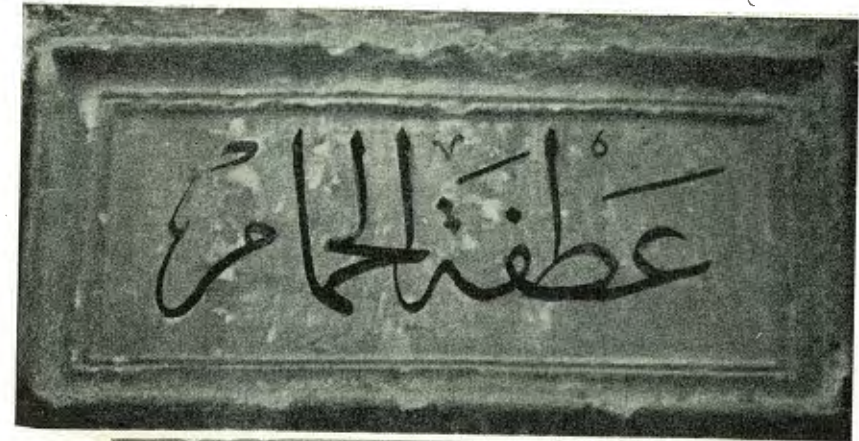 عَطْفَة الحمامُ